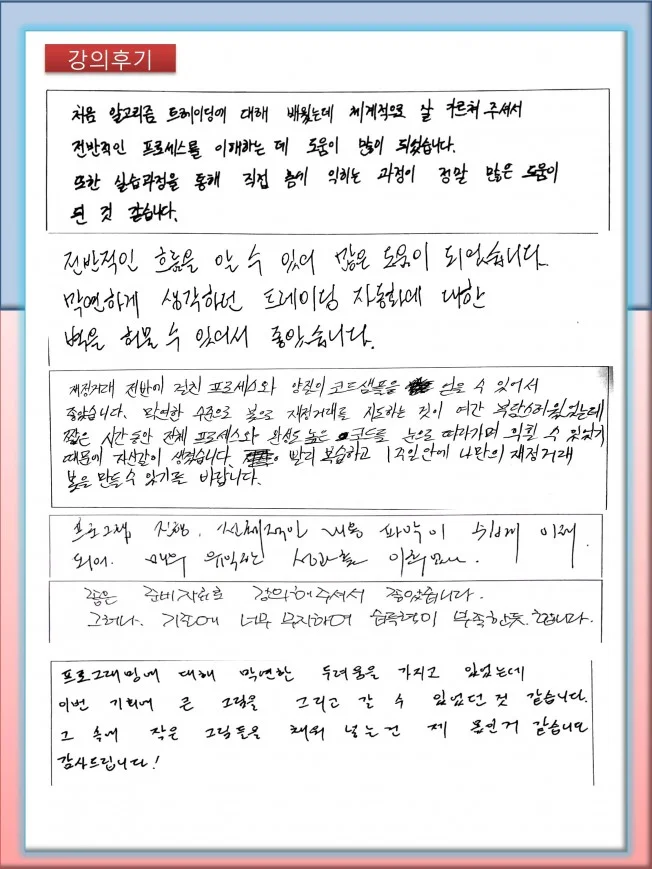 강의후기
처음 알고리즘 트레이딩에 대해 배웠는데 체계적으로 잘 가르쳐 주셔서
전반적인 프로세스를 이해하는 데 도움이 많이 되었습니다.
또한 실습과정을 통해 직접 몸에 익히는 과정이 정말 많은 도움이
된 것 같습니다.
전반적인 흐름을 알 수 있어 많은 도움이 되었습니다.
막연하게 생각하던 트레이딩 자동화에 대한
벽을 허물 수 있어서 좋았습니다.
재정거래 전반에 걸친 프로세스와 양질의 코드샘플을 얻을 수 있어서
좋았습니다. 막연한 수준으로 봇으로 재정거래를 시도하는 것이 여간 부담스러웠었는데
짧은 시간동안 전체 프로세스와 완성도 높은 코드를 눈으로 따라가며 익힐 수 있었기
때문에 자신감이 생겼습니다. 빨리 복습하고 1주일안에 나만의 재정거래
봇을 만들수 있기를 바랍니다.
프로그램 진행, 내용 파악이 쉽게 이해
되어. 매우 유익한
좋은 준비자료로 강의해주셔서 좋았습니다.
그러나, 기존에 너무 무지하여 습득력이 부족한듯.합니다.
프로그래밍에 대해 막연한 두려움을 가지고 있었는데
이번 기회에 큰 그림을 그리고 갈 수 있었던 것 같습니다.
그 속에 작은 그림들을 채워 넣는건 제 몫인거 같습니다
감사드립니다!